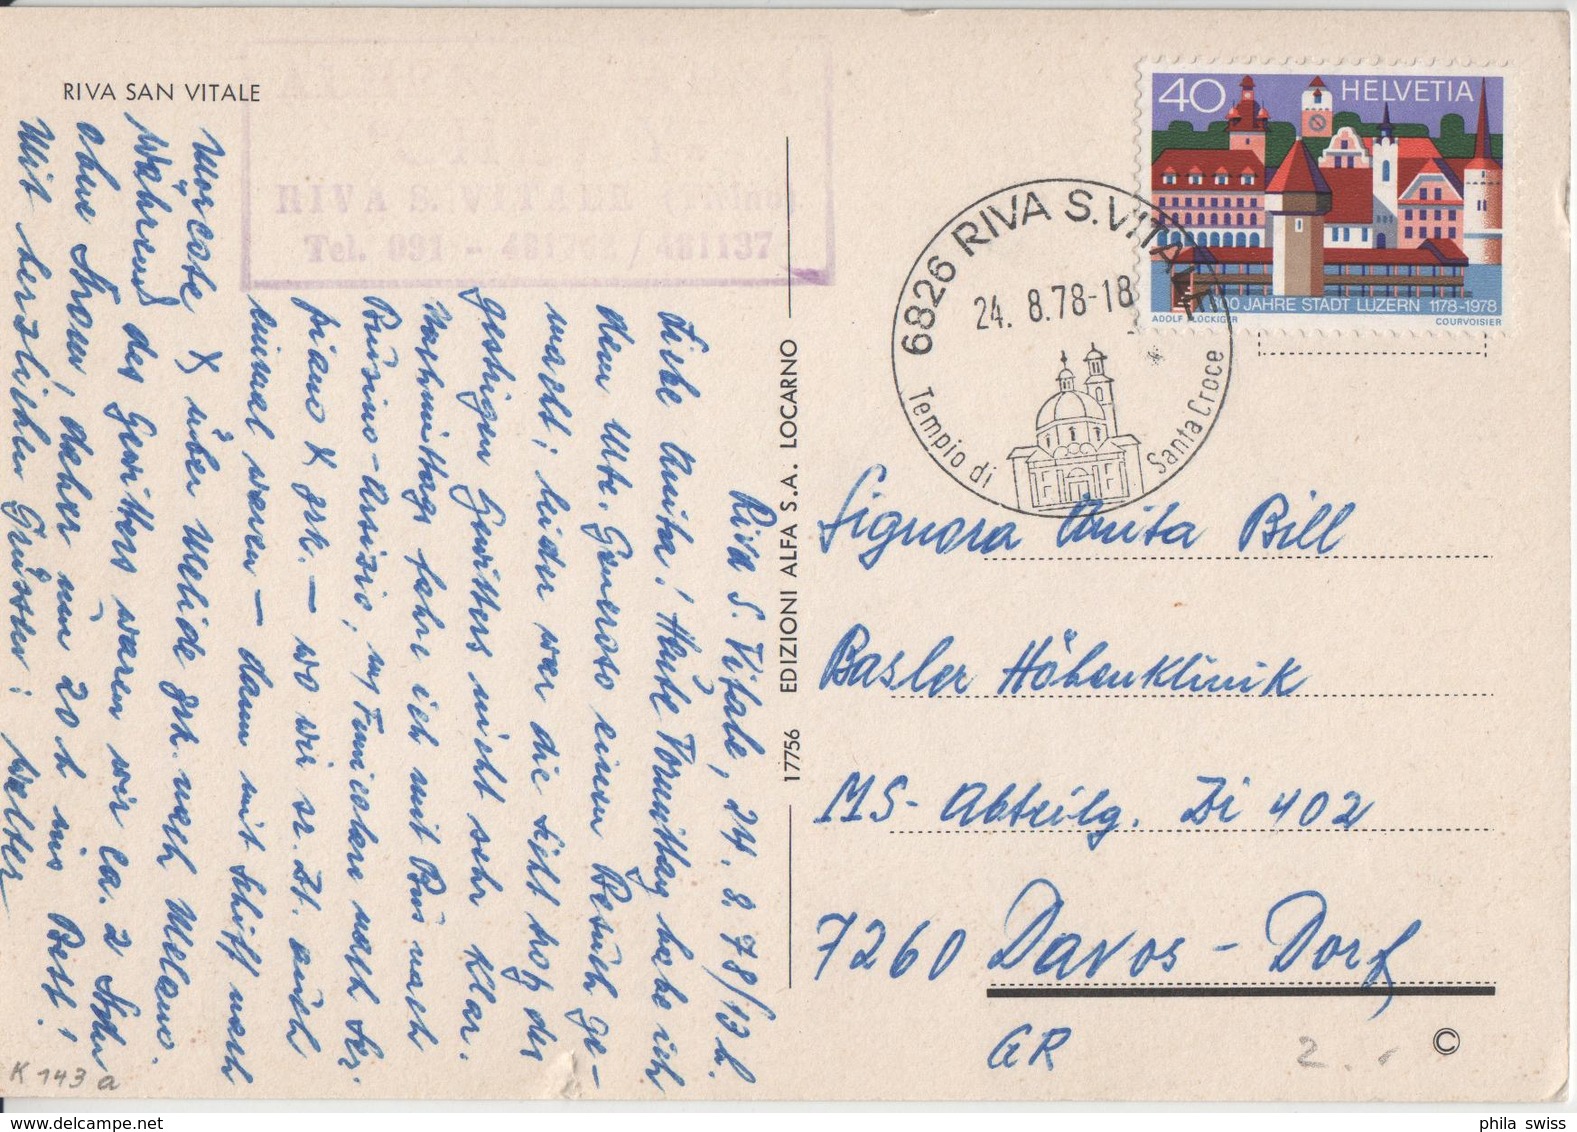 RIVA SAN VITALE
RIVA S. VITALE (Ticino)
Tel. 091 - 481 / 481137
40 HELVETIA
800 JAHRE STADT LUZERN 1178-1978
ADOLF FLÜCKIGER COURVOISIER
6826 RIVA S. VITALE
24. 8.78-18
Tempio di Santa Croce
17756 EDIZIONI ALFA S.A. LOCARNO
Riva S. Vitale, 24. 8. 78/13 h.
Liebe Anita! Heute Vormittag habe ich
dem Mte. Generoso einen Besuch ge-
macht; leider war die Sicht trotz des
gestrigen Gewitters nicht sehr klar.
Nachmittags fahre ich mit Bus nach
Brusino-Arsizio, Funicolare nach Ser-
piano – wo wir sr. Zt. auch
einmal waren – dann mit Schiff nach
Morcote & über Melide zrk. nach Melano.
Während des Gewitters waren wir ca. 2 Stdn
ohne Strom, daher um 20 h ins Bett!
Mit herzlichen Grüssen: Walter
Signora Anita Bill
Basler Höhenklinik
MS-Abteilg. Zi 402
7260 Davos-Dorf
GR
2.-
©
K 143 a
phila swiss